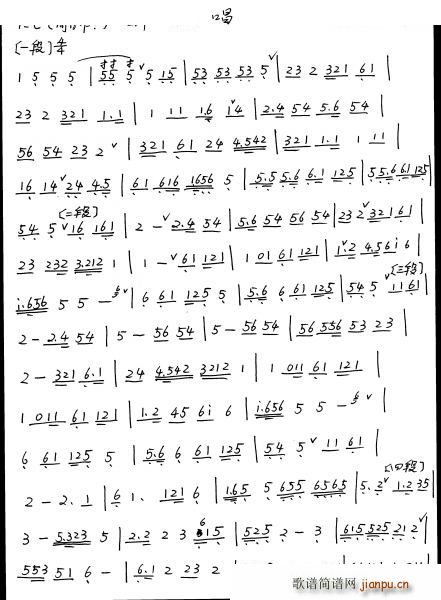 唱
〔一段〕
1 5 5 5 | 55 5 ˅ 5 15 | 53 53 53 5 ˅ | 23 2 321 61 |
23 2 321 1.1 | 1 11 1.6 1˅4 | 2.4 54 5.6 54 |
56 54 23 2 ˅ | 321 61 24 4.542 | 321 1.1 1 11 |
16 14 ˅ 24 4.5 | 61 616 1656 5 | 5.5 5.6 6.1 125 | 55.6 61 125 |
〔二段〕
54 5 ˅ 16 161 | 2 - ˅ 2.4 54 | 5.6 54 56 54 | 23 2 ˅ 321 61 |
23 232 3.212 1 | 1 - ˅ 61 121 | 1 01 61 121 | 1.2 4.56i 6 |
〔三段〕
i.656 5 5 - ˅ | 6 61 125 5 | 5.6 6 61 125 | 54 5 ˅ 11 61 |
2 - 2.4 54 | 5 - 56 54 | 5 - 56 54 | 56 556 53 23 |
2 - 321 6.1 | 24 4.542 3212 1 | 1 011 61 121 |
1 011 61 121 | 1.2 45 6i 6 | i.656 5 5 - ˅ |
6 61 125 5 | 5.6 6 61 125 | 54 5 ˅ 11 61 |
〔四段〕
2 - 2. 1 | 6 1. 121 6 | 1.65 5 655 6565 | 5. 2 ˅ 1.2 35 |
3 - 5.323 5 | 2.2 2 3 15 | 525 2 - 3 | 615 525 21 2 ˅ |
553 51 6 - | 6.1 2 23 2
歌谱简谱网
jianpu.cn